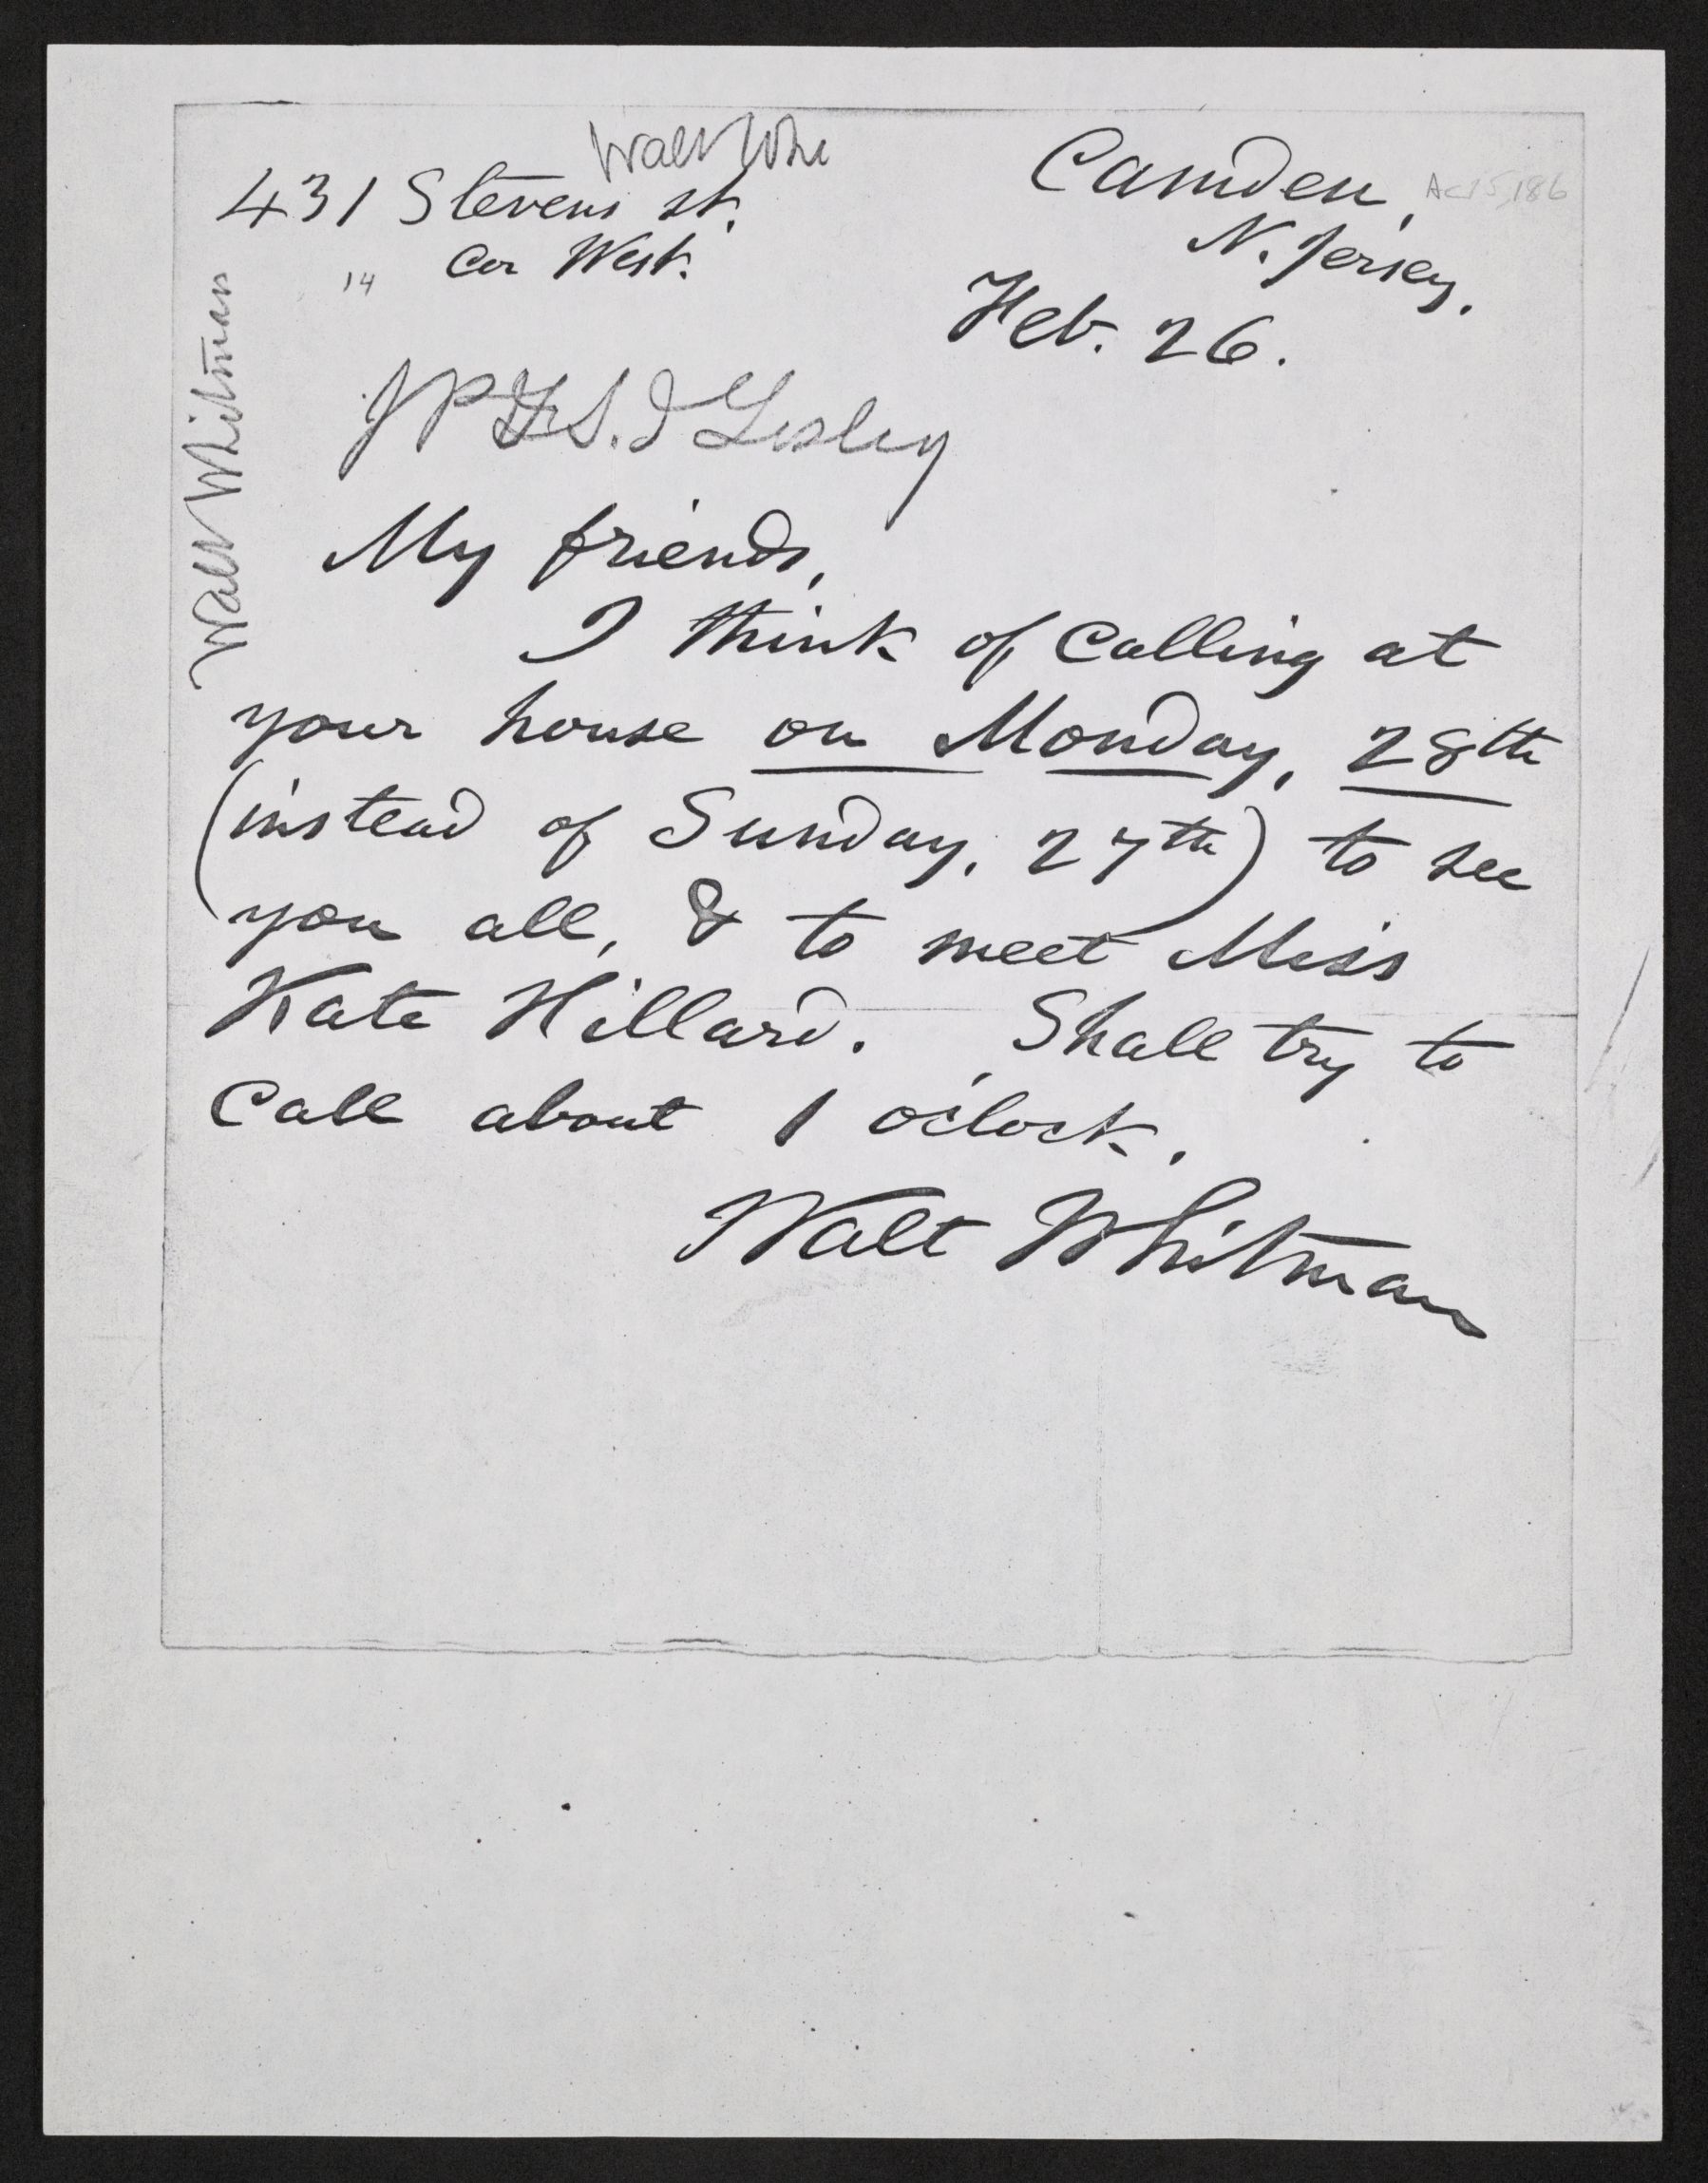 Walt Whi
431 Stevens st.
cor West.
14
Camden,
N. Jersey.
Feb. 26.
Walt Whitman
J P & S. I Lesley
My friends,
I think of calling at
your house on Monday, 28th
(instead of Sunday, 27th) to see
you all, & to meet Miss
Kate Hillard. Shall try to
call about 1 o'clock.
Walt Whitman